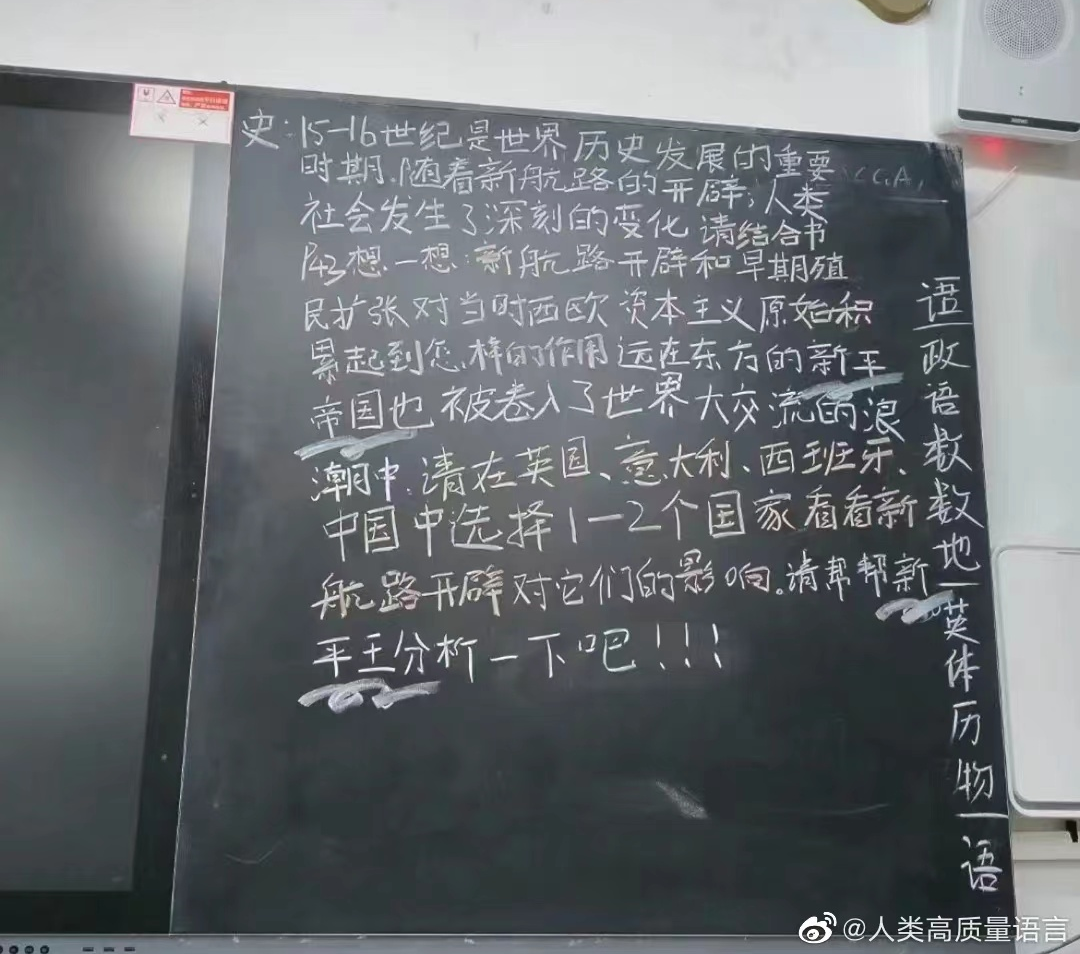 史：15-16世纪是世界历史发展的重要
时期.随着新航路的开辟；人类
社会发生了深刻的变化 请结合书
P43想一想：新航路开辟和早期殖
民扩张对当时西欧资本主义原始积
累起到怎样的作用 远在东方的新平
帝国也被卷入了世界大交流的浪
潮中.请在英国、意大利、西班牙、
中国中选择1-2个国家看看新
航路开辟对它们的影响.请帮帮新
平王分析一下吧！！！
语
政语数数地
英体历物
语
@人类高质量语言